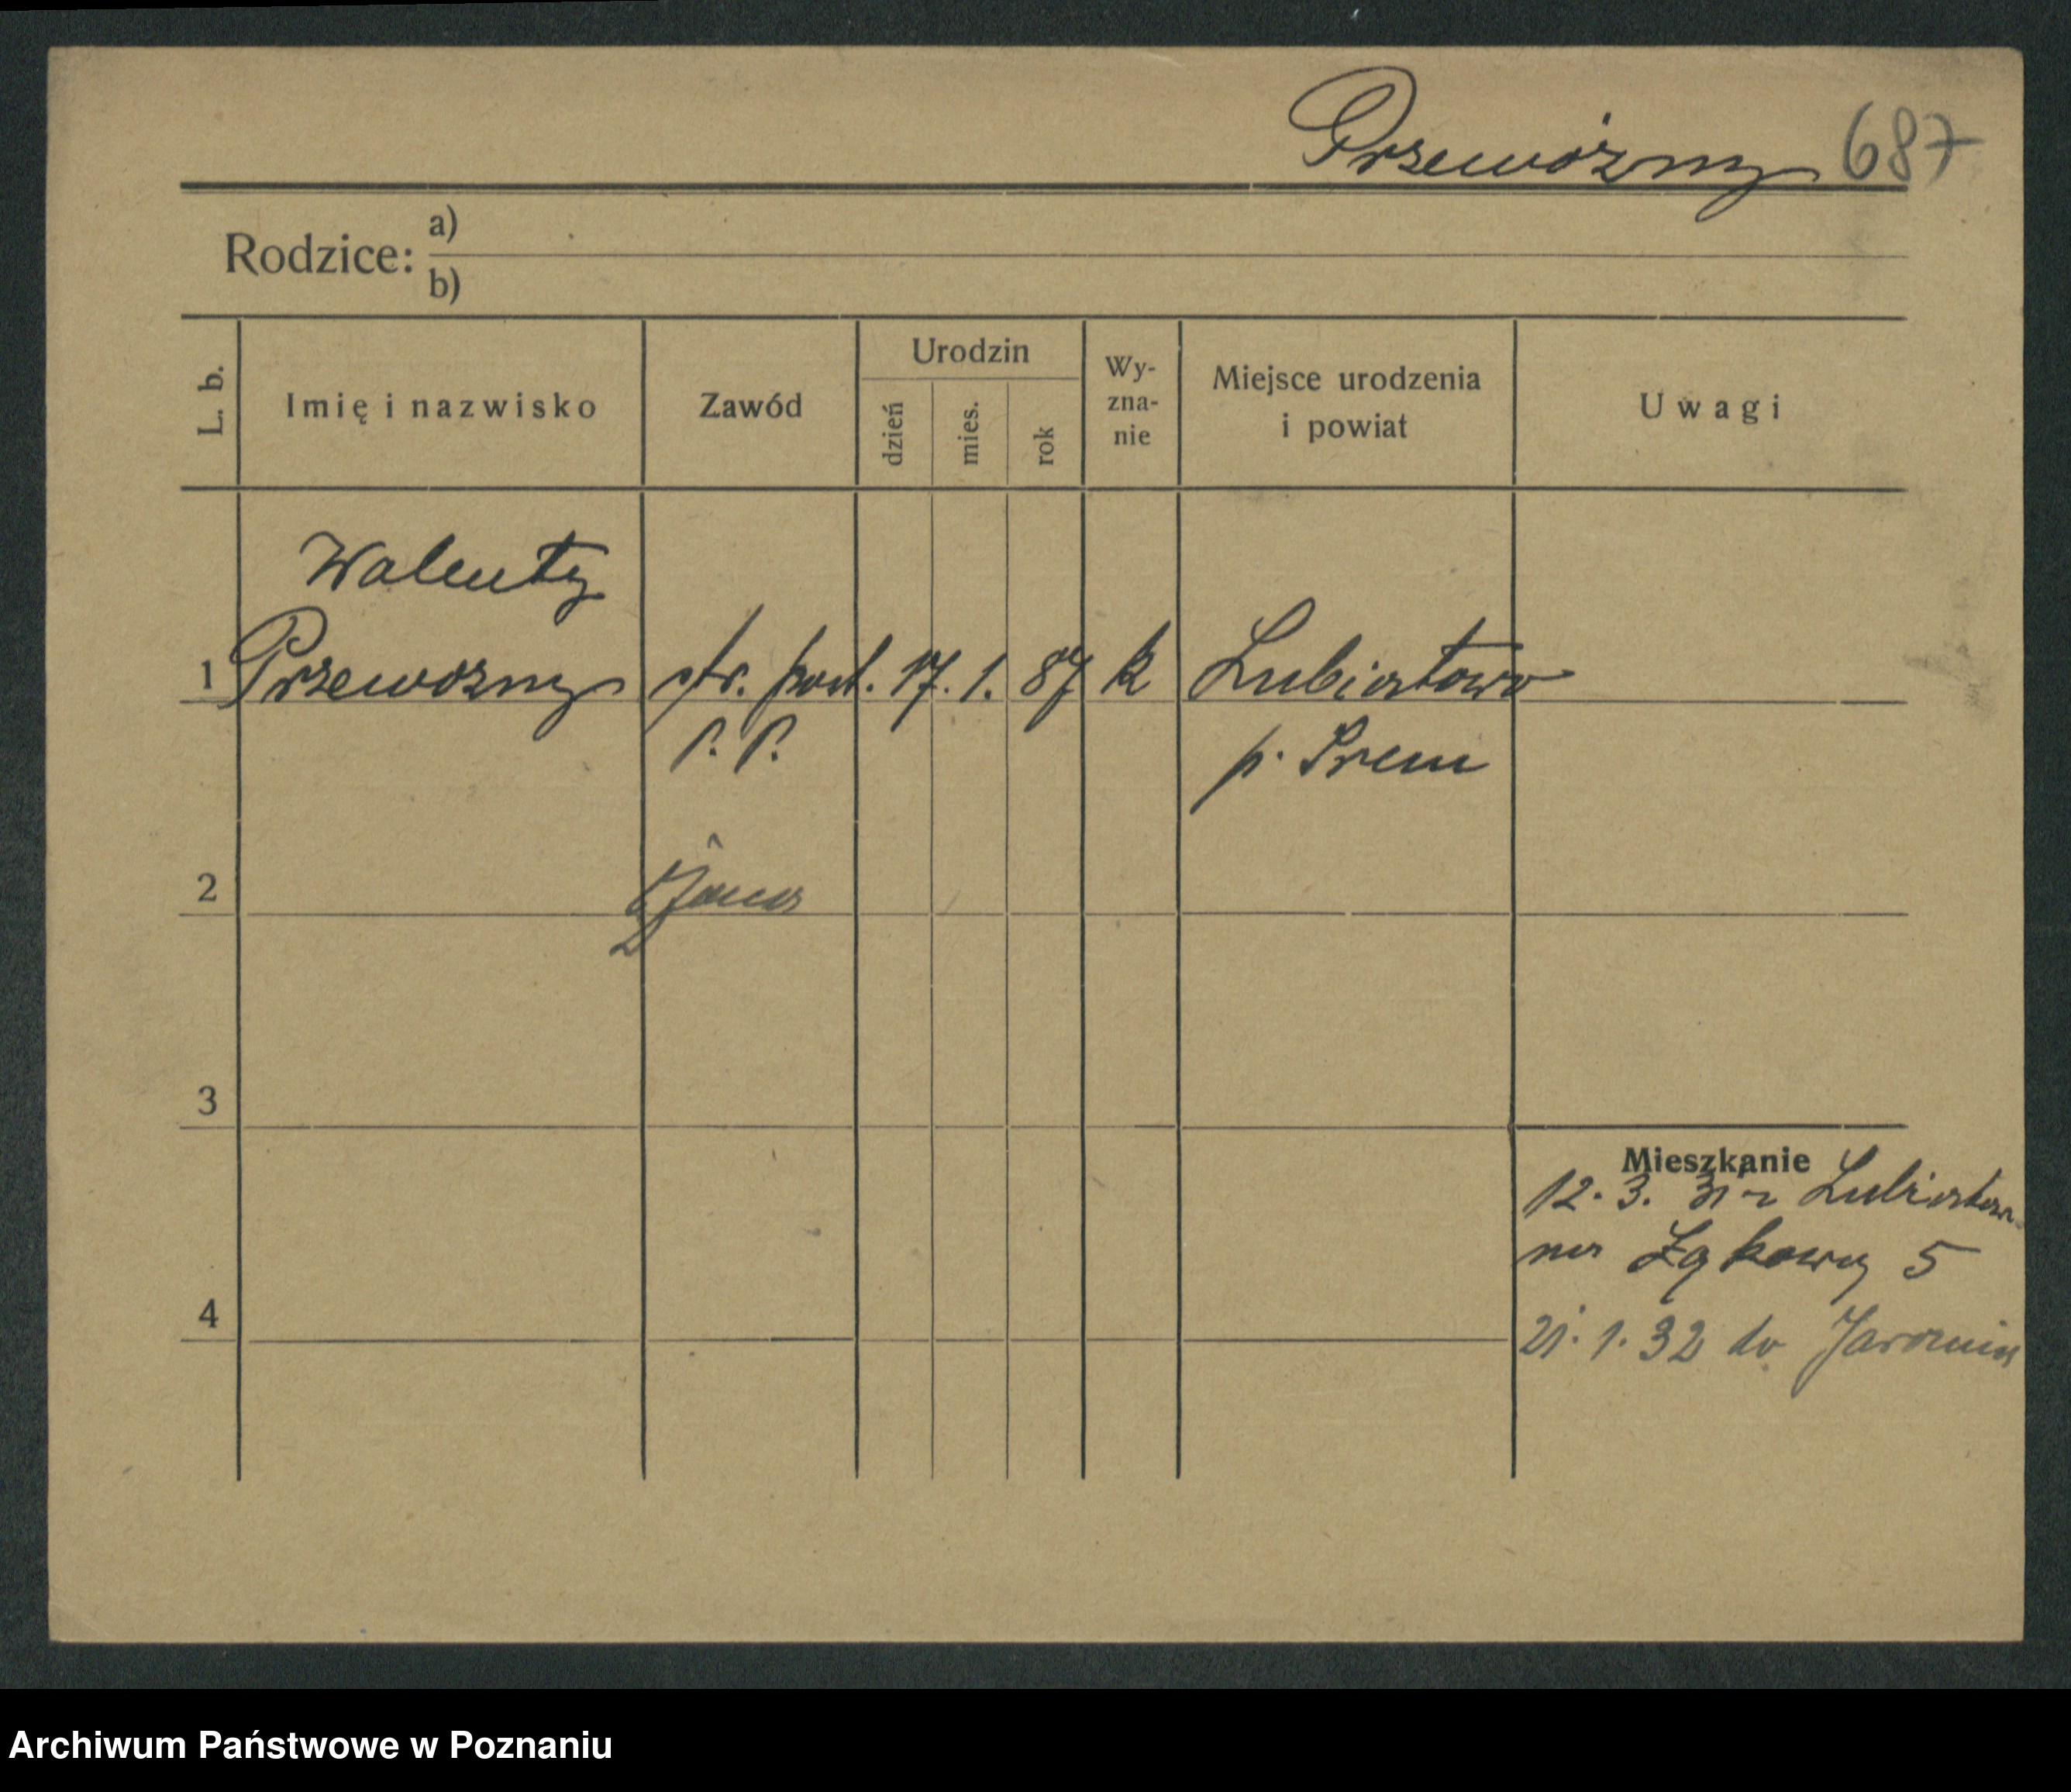 Przewóżny 687
Rodzice: a)
b)
L. b.
Imię i nazwisko
Zawód
Urodzin
dzień
mies.
rok
Wy-
zna-
nie
Miejsce urodzenia
i powiat
Uwagi
Walenty
1 Przewozny str. post. 17. 1. 87 k Lubiatowo
P. P. p. Śrem
2
3
Mieszkanie
12. 3. 31 z Lubiatowa
na Łąkową 5
4
21. 1. 32 do Jarocina
Archiwum Państwowe w Poznaniu